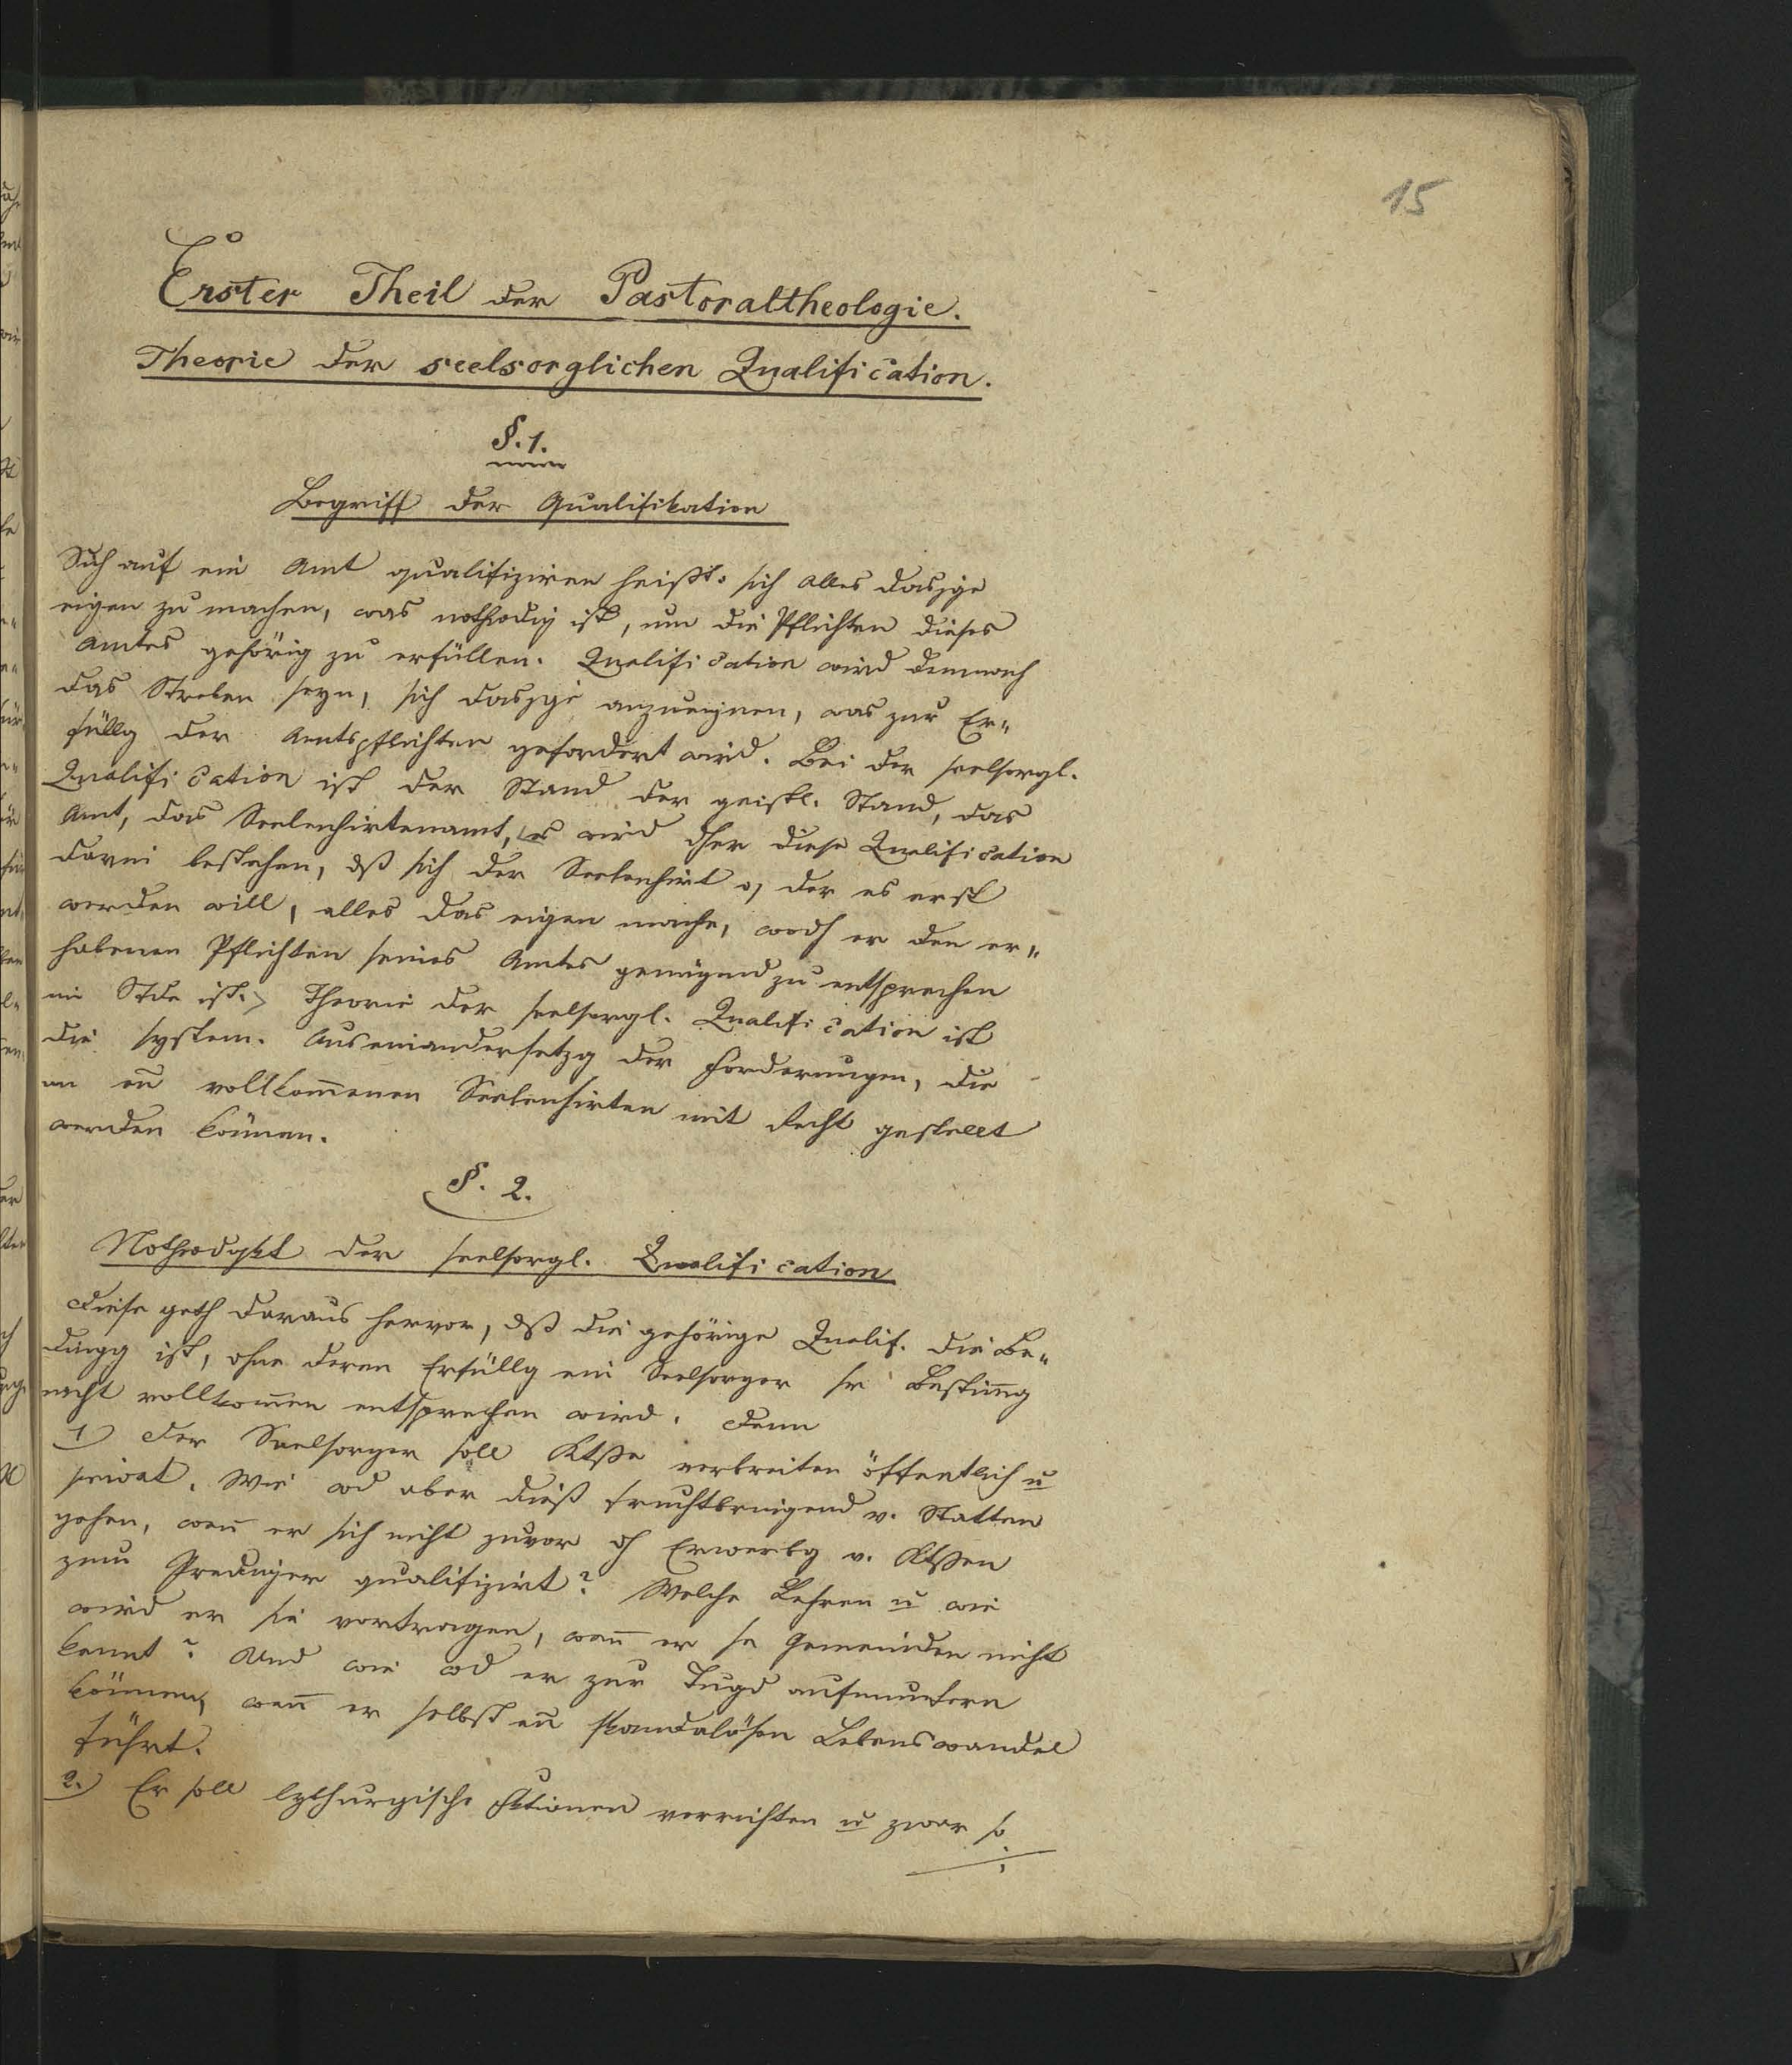 15
Erster Theil der Pastoraltheologie.
Theorie der seelsorglichen Qualification.
§. 1.
Begriff der Qualifikation
Sich auf ein Amt qualifiziren heißt: sich alles dasjge
eigen zu machen, was nothwdig ist, um die Pflichten dieses
Amtes gehörig zu erfüllen. Qualification wird demnach
das Streben seyn, sich dasjge anzueignen, was zur Er-
füllg der Amtspflichten gefordert wird. Bei der seelsorgl.
Qualification ist der Stand der geistl. Stand, das
Amt, das Seelenhirtenamt, es wird dher diese Qualification
darin bestehen, dß sich der Seelenhirt o, der es erst
werden will, alles das eigen mache, wodh er den er-
habenen Pflichten seines Amtes genügend zu entsprechen
im Stde ist. Theorie der seelsorgl. Qualification ist
die system. Auseinandersetzg der Forderungen, die
an en vollkom̄enen Seelenhirten mit Recht gestellt
werden können.
§. 2.
Nothwdgkt der seelsorgl. Qualification
Diese geth daraus hervor, dß die gehörige Qualif. die Be-
dingg ist, ohne deren Erfüllg ein Seelsorger sr Bestim̄g
nicht vollkom̄en entsprechen wird. Denn
1) Der Seelsorger soll Ktße verbreiten öffentlich u
privat. Wie wd aber dieß fruchtbringend v. Statten
gehen, wen̄ er sich nicht zuvor dh Erwerbg v. Ktßen
zum Prediger qualifizirt? Welche Lehren u wie
wird er sie vortragen, wen̄ er se Gemeinden nicht
kennt? Und wie wd er zur Tugd aufmuntern
können, wen̄ er selbst en̄ skandalösen Lebenswandel
führt.
2.) Er soll lythurgische Fktionen verrichten u zwar so